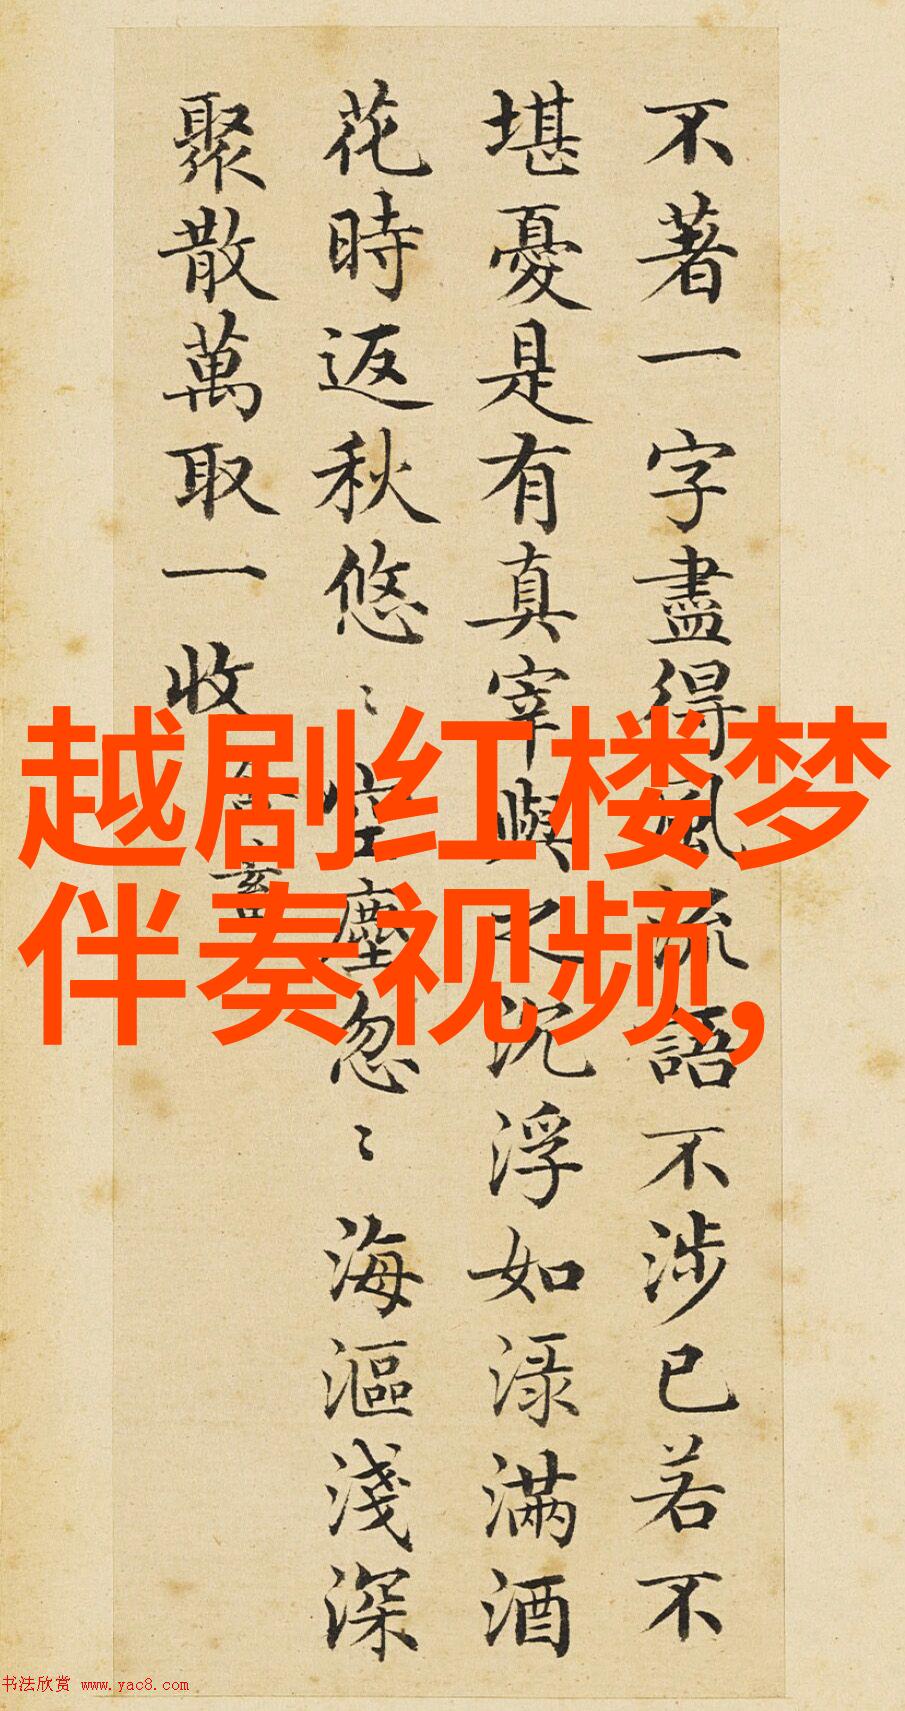 不著一字盡得風流語不涉已若不
堪憂是有真宰與之沉浮如渌滿酒
花時返秋悠〻空塵忽〻海漚淺深
聚散萬取一收
越剧红楼梦
伴奏视频,
书法欣赏 www.yac8.com